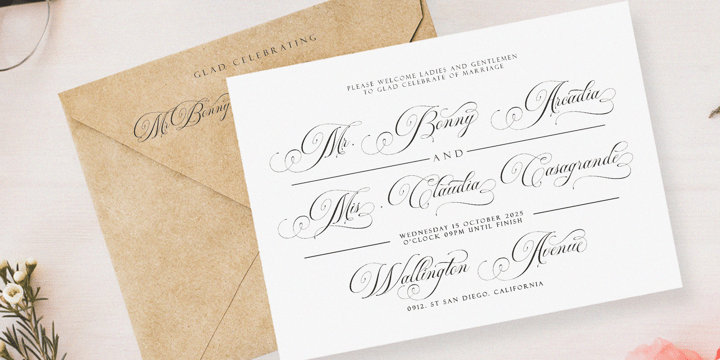 GLAD CELEBRATING
Mr. Bonny
PLEASE WELCOME LADIES AND GENTLEMEN
TO GLAD CELEBRATE OF MARRIAGE
Mr. Bonny Arcadia
AND
Mis. Claudia Casagrande
WEDNESDAY 15 OCTOBER 2025
O'CLOCK 09PM UNTIL FINISH
Wallington Avenue
0912. ST SAN DIEGO, CALIFORNIA